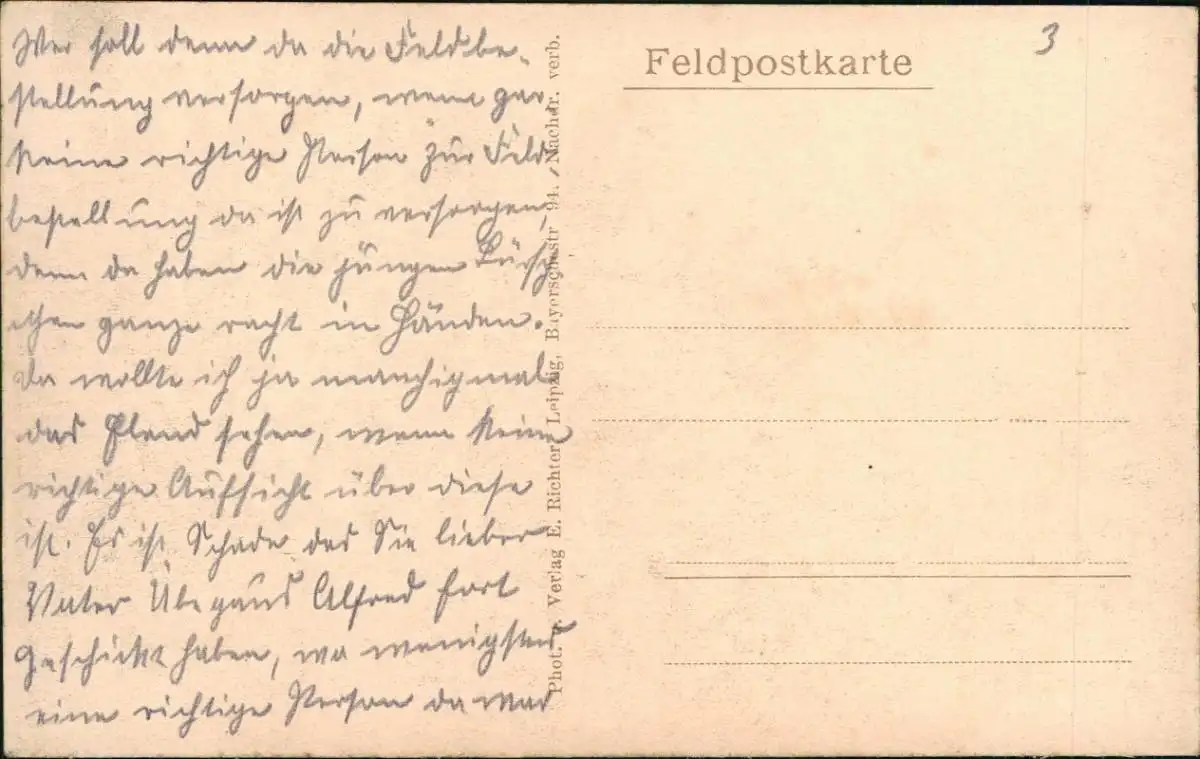 Wer soll denn da die Feldbe-
stellung versorgen, wenn gar
keine richtige Person zur Feld
bestellung da ist zu versorgen,
denn da haben die jungen Bürsch
chen ganze racht in Händen.
Da wollte ich ja manchigmal
das Elend sehen, wenn keine
richtige Aufsicht über diese
ist. Es ist Schade das Sie lieber
Vater Alfred fort
Geschickt haben, wo wenigstens
eine richtige Person da war
Phot. u. Verlag E. Richter, Leipzig, Bayerschestr. 94. Nachdr. verb.
Feldpostkarte
3